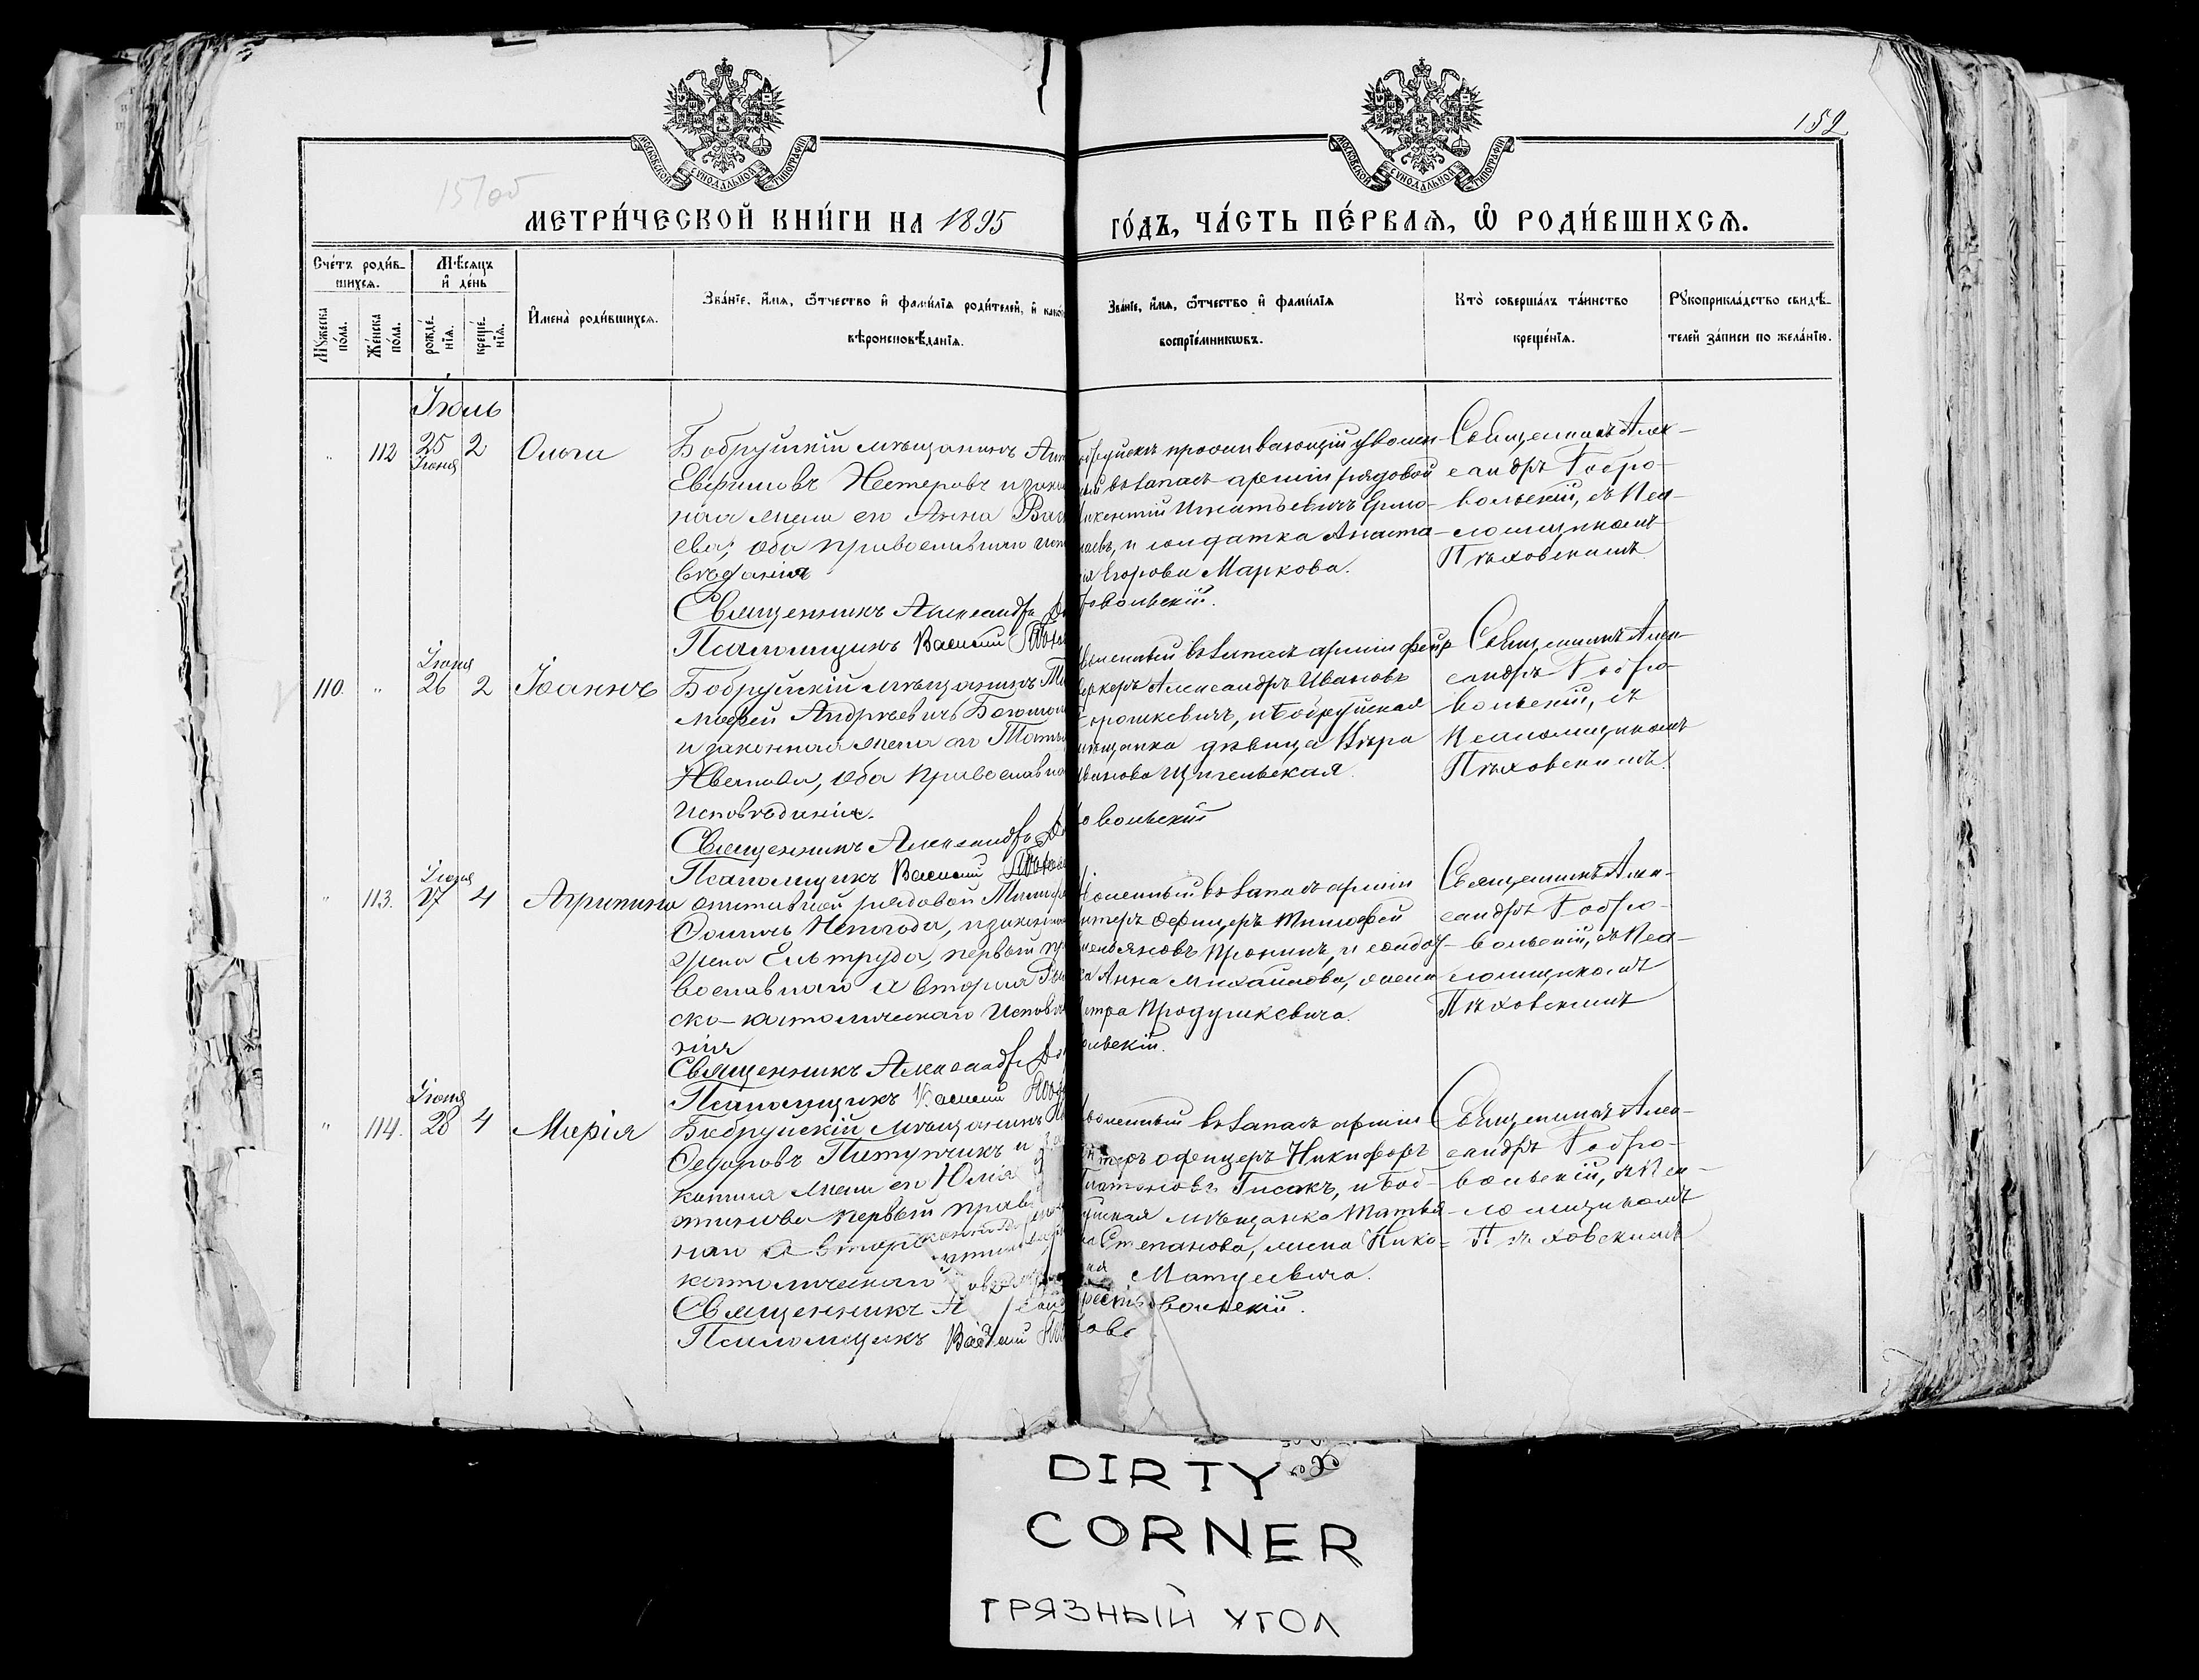 152
151об
МОСКОВСКОЙ СУНОДАЛЬНОЙ ТИПОГРАФІИ
МОСКОВСКОЙ СУНОДАЛЬНОЙ ТИПОГРАФІИ
МЕТРИ́ЧЕСКОЙ КНИ́ГИ НА 1895 ГО́ДЪ, ЧА́СТЬ ПЕ́РВАѦ, Ѽ РОДИ́ВШИХСѦ.
Сче́тъ роди́в-
шихсѧ.
Мꙋжеска по́ла.
Же́нска по́ла.
Мѣ́сѧцъ
и҆ де́нь
рожде́-
нїѧ.
креще́-
нїѧ.
И҆мена̀ роди́вшихсѧ.
Зва́нїе, и҆́мѧ, ѻ҆́тчество и҆ фами́лїѧ роди́телей, и҆ како́
вѣроисповѣ́данїѧ.
Зва́нїе, и҆́мѧ, ѻ҆́тчество и҆ фами́лїѧ
воспрїе́мникѡвъ.
Кто̀ соверша́лъ та́инство
креще́нїѧ.
Рꙋкоприкла́дство свидѣ́-
телей за́писи по жела́нїю.
Іюль
" 112 25 Іюня 2 Ольга
Бобруйскій мѣщанинъ
Евфимовъ Нестеровъ и закон
ная жена его Анна Вас
ева, оба православнаго испо
вѣданія
Священникъ Александръ До
Псаломщикъ Василій Пѣхов
проживающій уволен-
въ запасъ арміи рядовой
Игнатьевичъ Ермо-
и солдатка Анаста-
Егорова Маркова.
бровольскій.
Священникъ Алек-
сандръ Добро-
вольскій, съ Пса-
ломщикомъ
Пѣховскимъ
110. " Іюня 26 2 Іоаннъ
Бобруйскій мѣщанинъ Ти
мофей Андреевичъ
и законная жена его Татья
Иванова, оба православна
исповѣданія.
Священникъ Александръ До
Псаломщикъ Василій Пѣхов
воленный въ запасъ арміи фейр
веркеръ Александръ Ивановъ
Горошкевичъ, и Бобруйская
мѣщанка дѣвица Вѣра
Иванова
овольскій
Священникъ Алек-
сандръ Добро-
вольскій, съ
Псаломщикомъ
Пѣховскимъ.
" 113. Іюня 27 4 Агрипина
отставной рядовой
Ѳомичъ Непогода, и законная
жена первый пра
вославнаго а вторая Рим
ско-католическаго исповѣда
нія
Священникъ Александръ До
Псаломщикъ Василій
воленный въ запасъ арміи
унтеръ офицеръ Тимофей
Пронинъ, и солдат-
ка Анна Михайлова, жена
Петра Продушкевича.
ольскій.
Священникъ Алек-
сандръ Добро-
вольскій, съ Пса-
ломщикомъ
Пѣховскимъ
" 114. Іюня 28 4 Марія
Бобруйскій мѣщанинъ
Ѳедоровъ и за
конная жена его Юлія
первый прав
наго а втор
католическаго
Священникъ А
Псаломщикъ Василій
воленный въ запасъ арміи
унтеръ офицеръ Никифоръ
Платоновъ Гисакъ, и Боб-
руйская мѣщанка Татья-
на Степанова, жена Нико-
лая Матусевича.
овольскій.
Священникъ Алек-
сандръ Добро-
вольскій, съ Пса-
ломщикомъ
Пѣховскимъ
DIRTY
CORNER
ГРЯЗНЫЙ УГОЛ